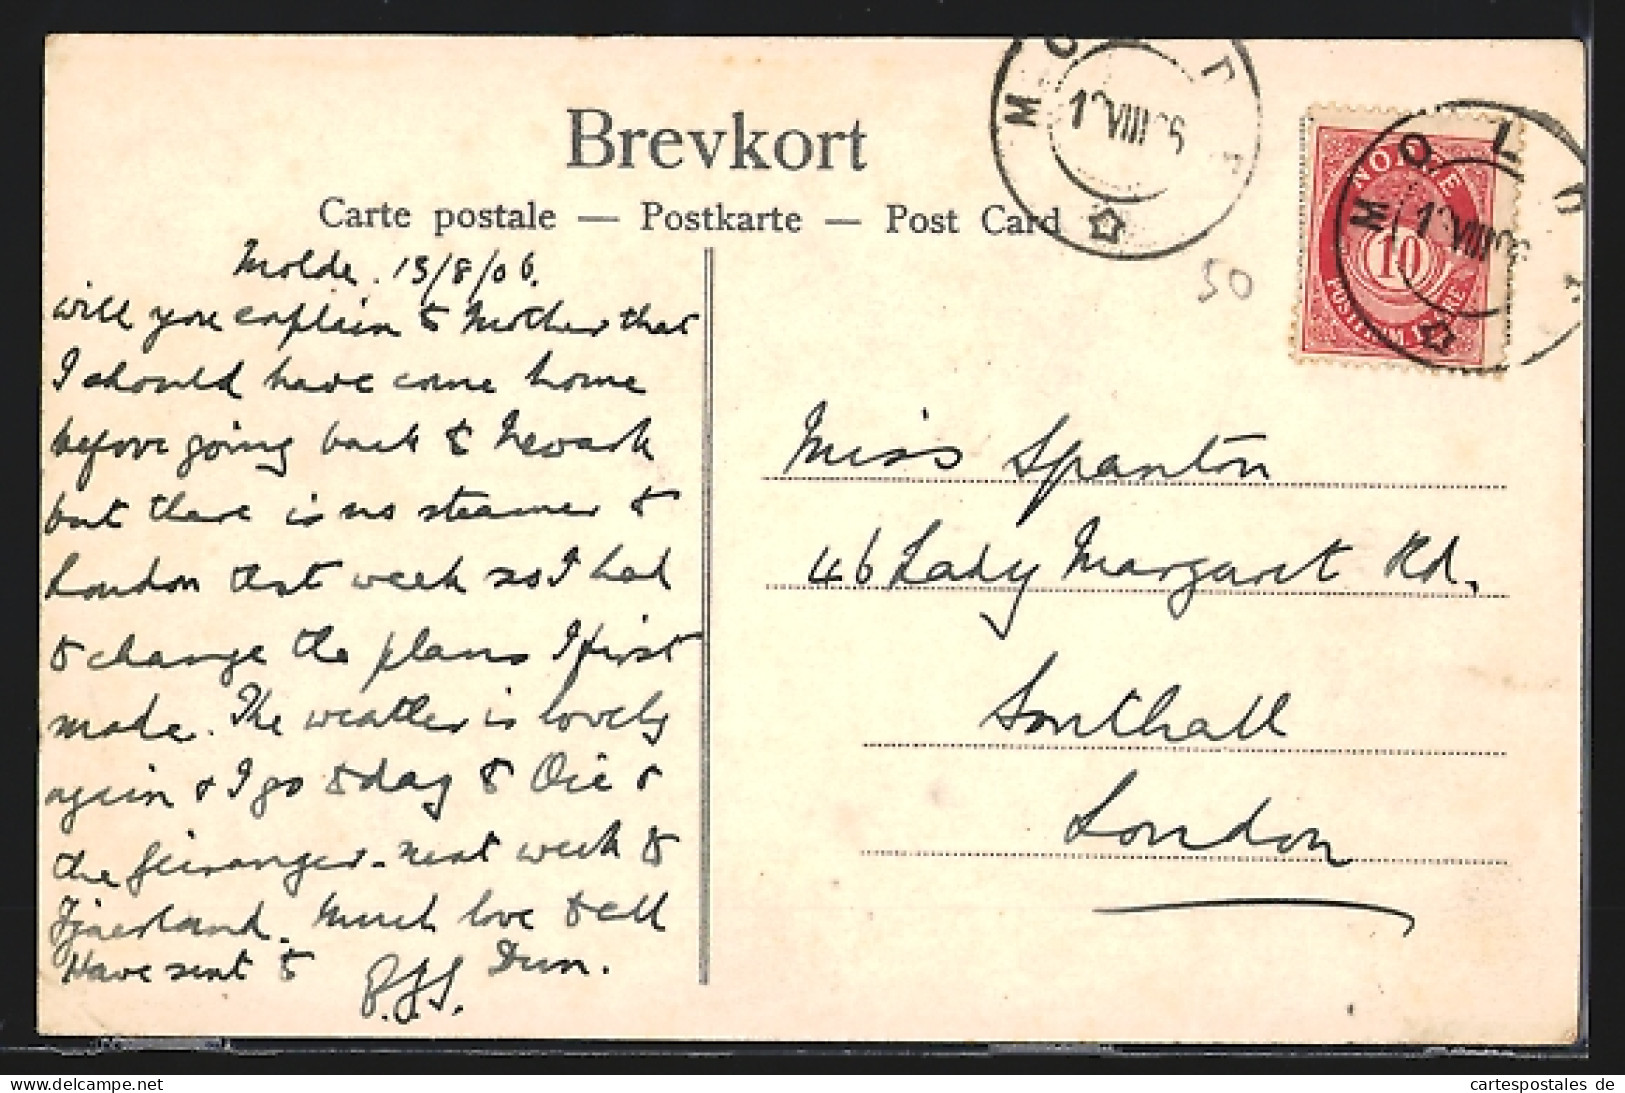 Brevkort
Carte postale — Postkarte — Post Card
MOLDE
VIII
MOLDE
VIII
NORGE
10
POSTFRIM
50
Molde. 13/8/06.
will you explain to Mother that
I should have come home
before going back to Newark
but there is no steamer to
London that week so I had
to change the plans I first
made. The weather is lovely
again & I go today to Oie &
the Geiranger. next week to
Fjaerland. Much love to all
Have sent to
Miss Spanton
46 Lady Margaret Rd.
Southall
London
test.delcampe.net
cartespostales de